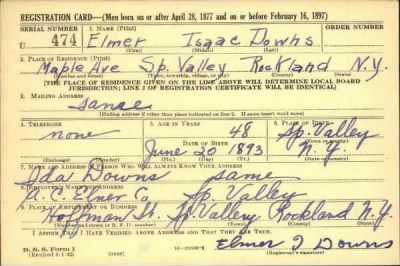 REGISTRATION CARD—(Men born on or after April 28, 1877 and on or before February 16, 1897)
SERIAL NUMBER 1. NAME (Print)
U 474 Elmer Isaac Downs
(First) (Middle) (Last)
2. PLACE OF RESIDENCE (Print)
Maple Ave Sp. Valley Rockland N.Y.
(Number and street) (Town, township, village, or city) (County) (State)
[THE PLACE OF RESIDENCE GIVEN ON THE LINE ABOVE WILL DETERMINE LOCAL BOARD
JURISDICTION; LINE 2 OF REGISTRATION CERTIFICATE WILL BE IDENTICAL]
3. MAILING ADDRESS
same
[Mailing address if other than place indicated on line 2. If same insert word same]
4. TELEPHONE 5. AGE IN YEARS 6. PLACE OF BIRTH
none 48 Sp. Valley
DATE OF BIRTH
June 20 1893 N.Y.
(Exchange) (Number) (Mo.) (Day) (Yr.) (State or country)
7. NAME AND ADDRESS OF PERSON WHO WILL ALWAYS KNOW YOUR ADDRESS
Ida Downs same
8. EMPLOYER'S NAME AND ADDRESS
A. C. Sp. Valley
9. PLACE OF EMPLOYMENT OR BUSINESS
Hoffman St. Sp. Valley Rockland N.Y.
(Number and street or R. F. D. number) (Town) (County) (State)
I AFFIRM THAT I HAVE VERIFIED ABOVE ANSWERS AND THAT THEY ARE TRUE.
D. S. S. Form 1
(Revised 4-1-42) (over)
Elmer I Downs
(Registrant's signature)